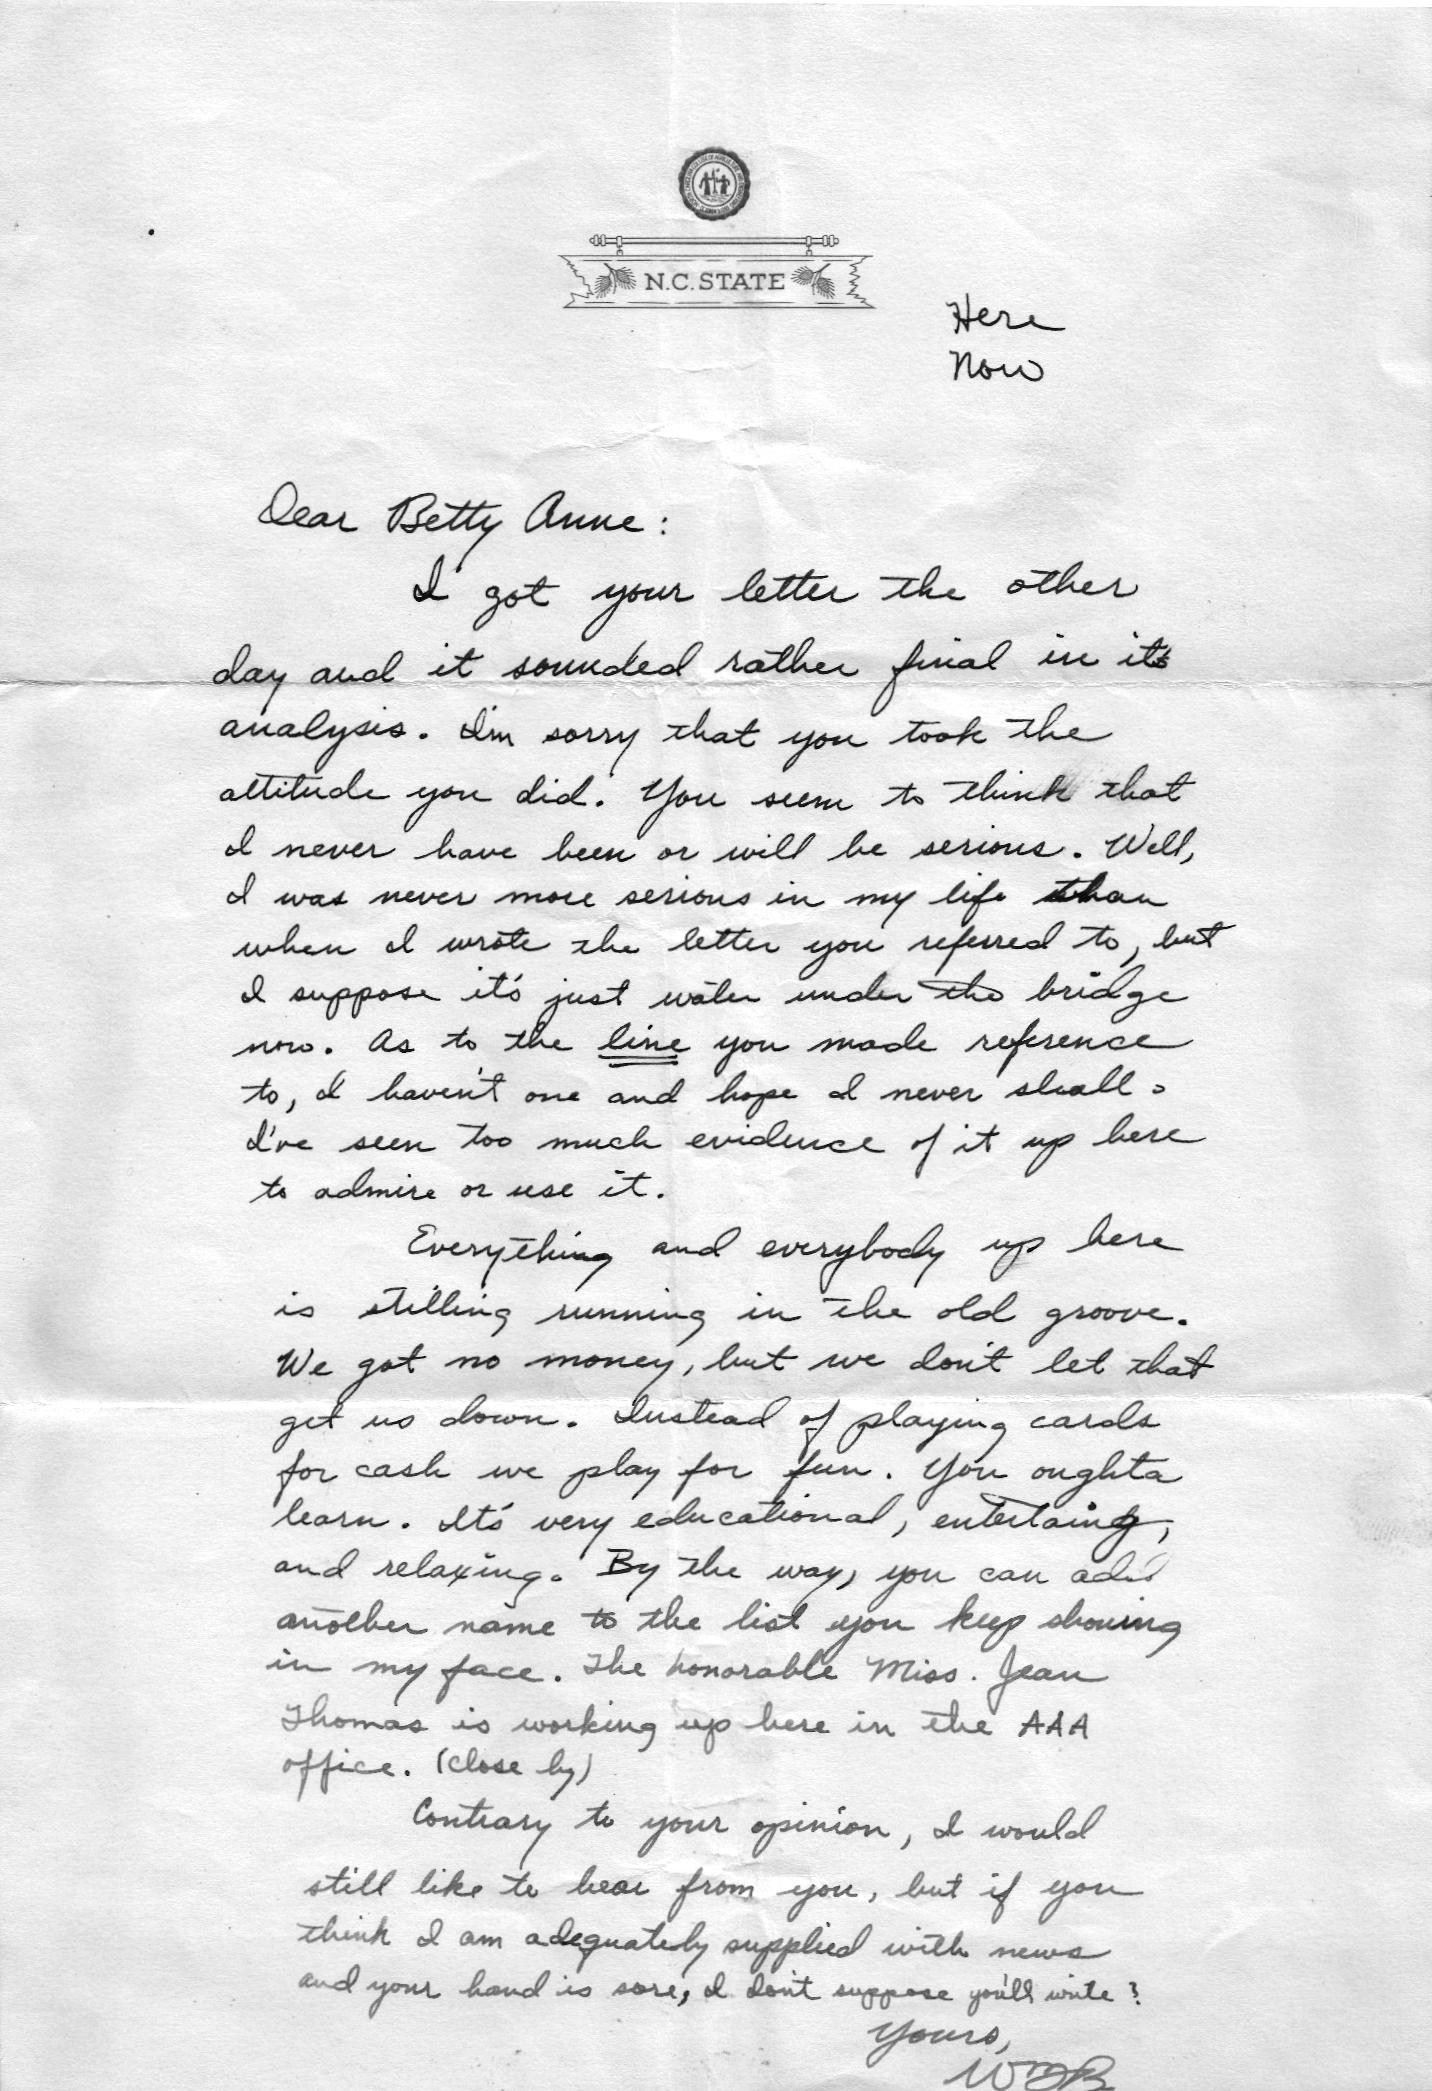 N.C. STATE
Here
Now
Dear Betty Anne:
I got your letter the other
day and it sounded rather final in its
analysis. I'm sorry that you took the
attitude you did. You seem to think that
I never have been or will be serious. Well,
I was never more serious in my life than
when I wrote the letter you referred to, but
I suppose it's just water under the bridge
now. As to the line you made reference
to, I haven't one and hope I never shall.
I've seen too much evidence of it up here
to admire or use it.
Everything and everybody up here
is stilling running in the old groove.
We got no money, but we don't let that
get us down. Instead of playing cards
for cash we play for fun. You oughta
learn. It's very educational, entertaing,
and relaxing. By the way, you can add
another name to the list you keep shoving
in my face. The honorable Miss. Jean
Thomas is working up here in the AAA
office. (close by)
Contrary to your opinion, I would
still like to hear from you, but if you
think I am adequately supplied with news
and your hand is sore, I don't suppose you'll write?
Yours,